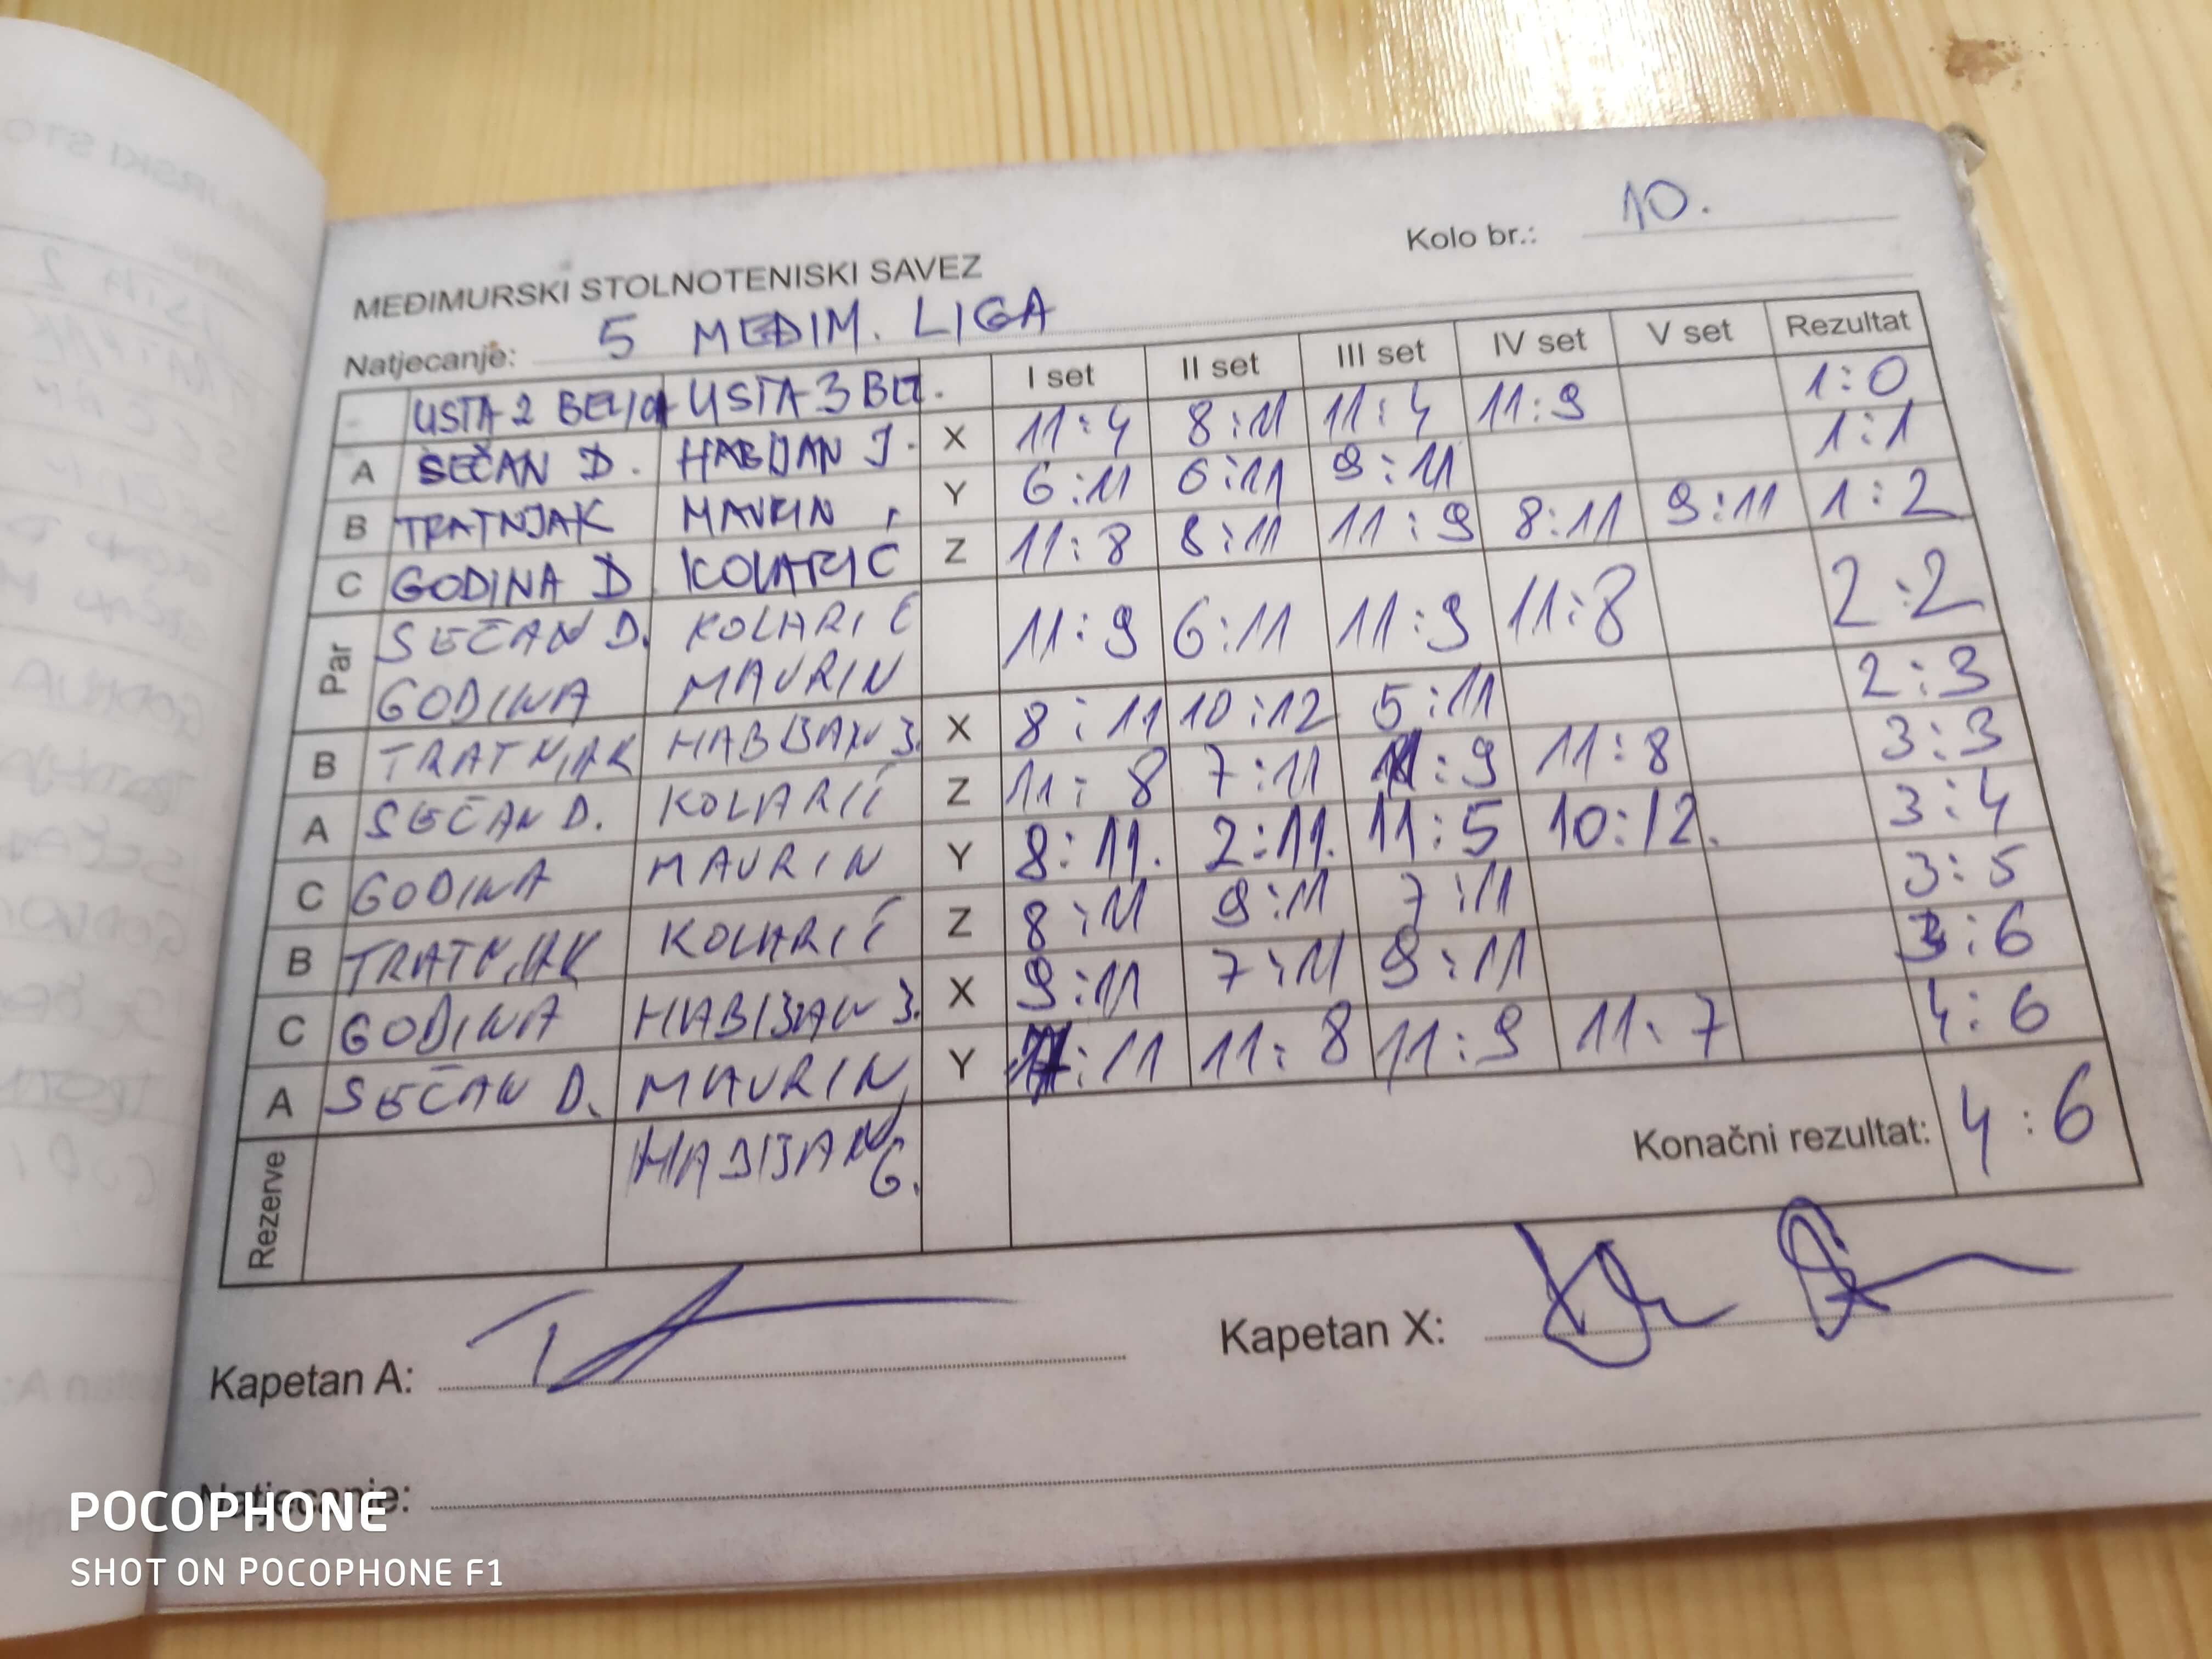 Kolo br.: 10.
MEĐIMURSKI STOLNOTENISKI SAVEZ
Natjecanje: 5 MEĐIM. LIGA
USTA 2 USTA 3 BEL. I set II set III set IV set V set Rezultat
A SEČAN D. HABIJAN J. X 11:4 8:11 11:4 11:9 1:0
B TRATNJAK MAVRIN Y 6:11 6:11 9:11 1:1
C GODINA D. KOLARIĆ Z 11:8 8:11 11:9 8:11 9:11 1:2
Par SEČAN D. KOLARIĆ 11:9 6:11 11:9 11:8 2:2
GODINA MAVRIN
B TRATNJAK HABIJAN J. X 8:11 10:12 5:11 2:3
A SEČAN D. KOLARIĆ Z 11:8 7:11 11:9 11:8 3:3
C GODINA MAVRIN Y 8:11. 2:11. 11:5 10:12. 3:4
B TRATNJAK KOLARIĆ Z 8:11 9:11 7:11 3:5
C GODINA HABIJAN J. X 9:11 7:11 9:11 3:6
A SEČAN D. MAVRIN Y :11 11:8 11:9 11:7 4:6
Rezerve HABIJAN G. Konačni rezultat: 4:6
Kapetan A: Kapetan X:
Natjecanje:
POCOPHONE
SHOT ON POCOPHONE F1